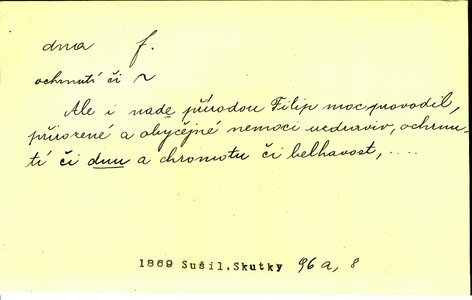 dna f.
ochrnutí či ~
Ale i nade přírodou Filip moc provodil,
přirozené a obyčejné nemoci uzdraviv, ochrnu-
tí či dnu a chromotu či belhavost, ....
1869 Sušil, Skutky 96 a, 8